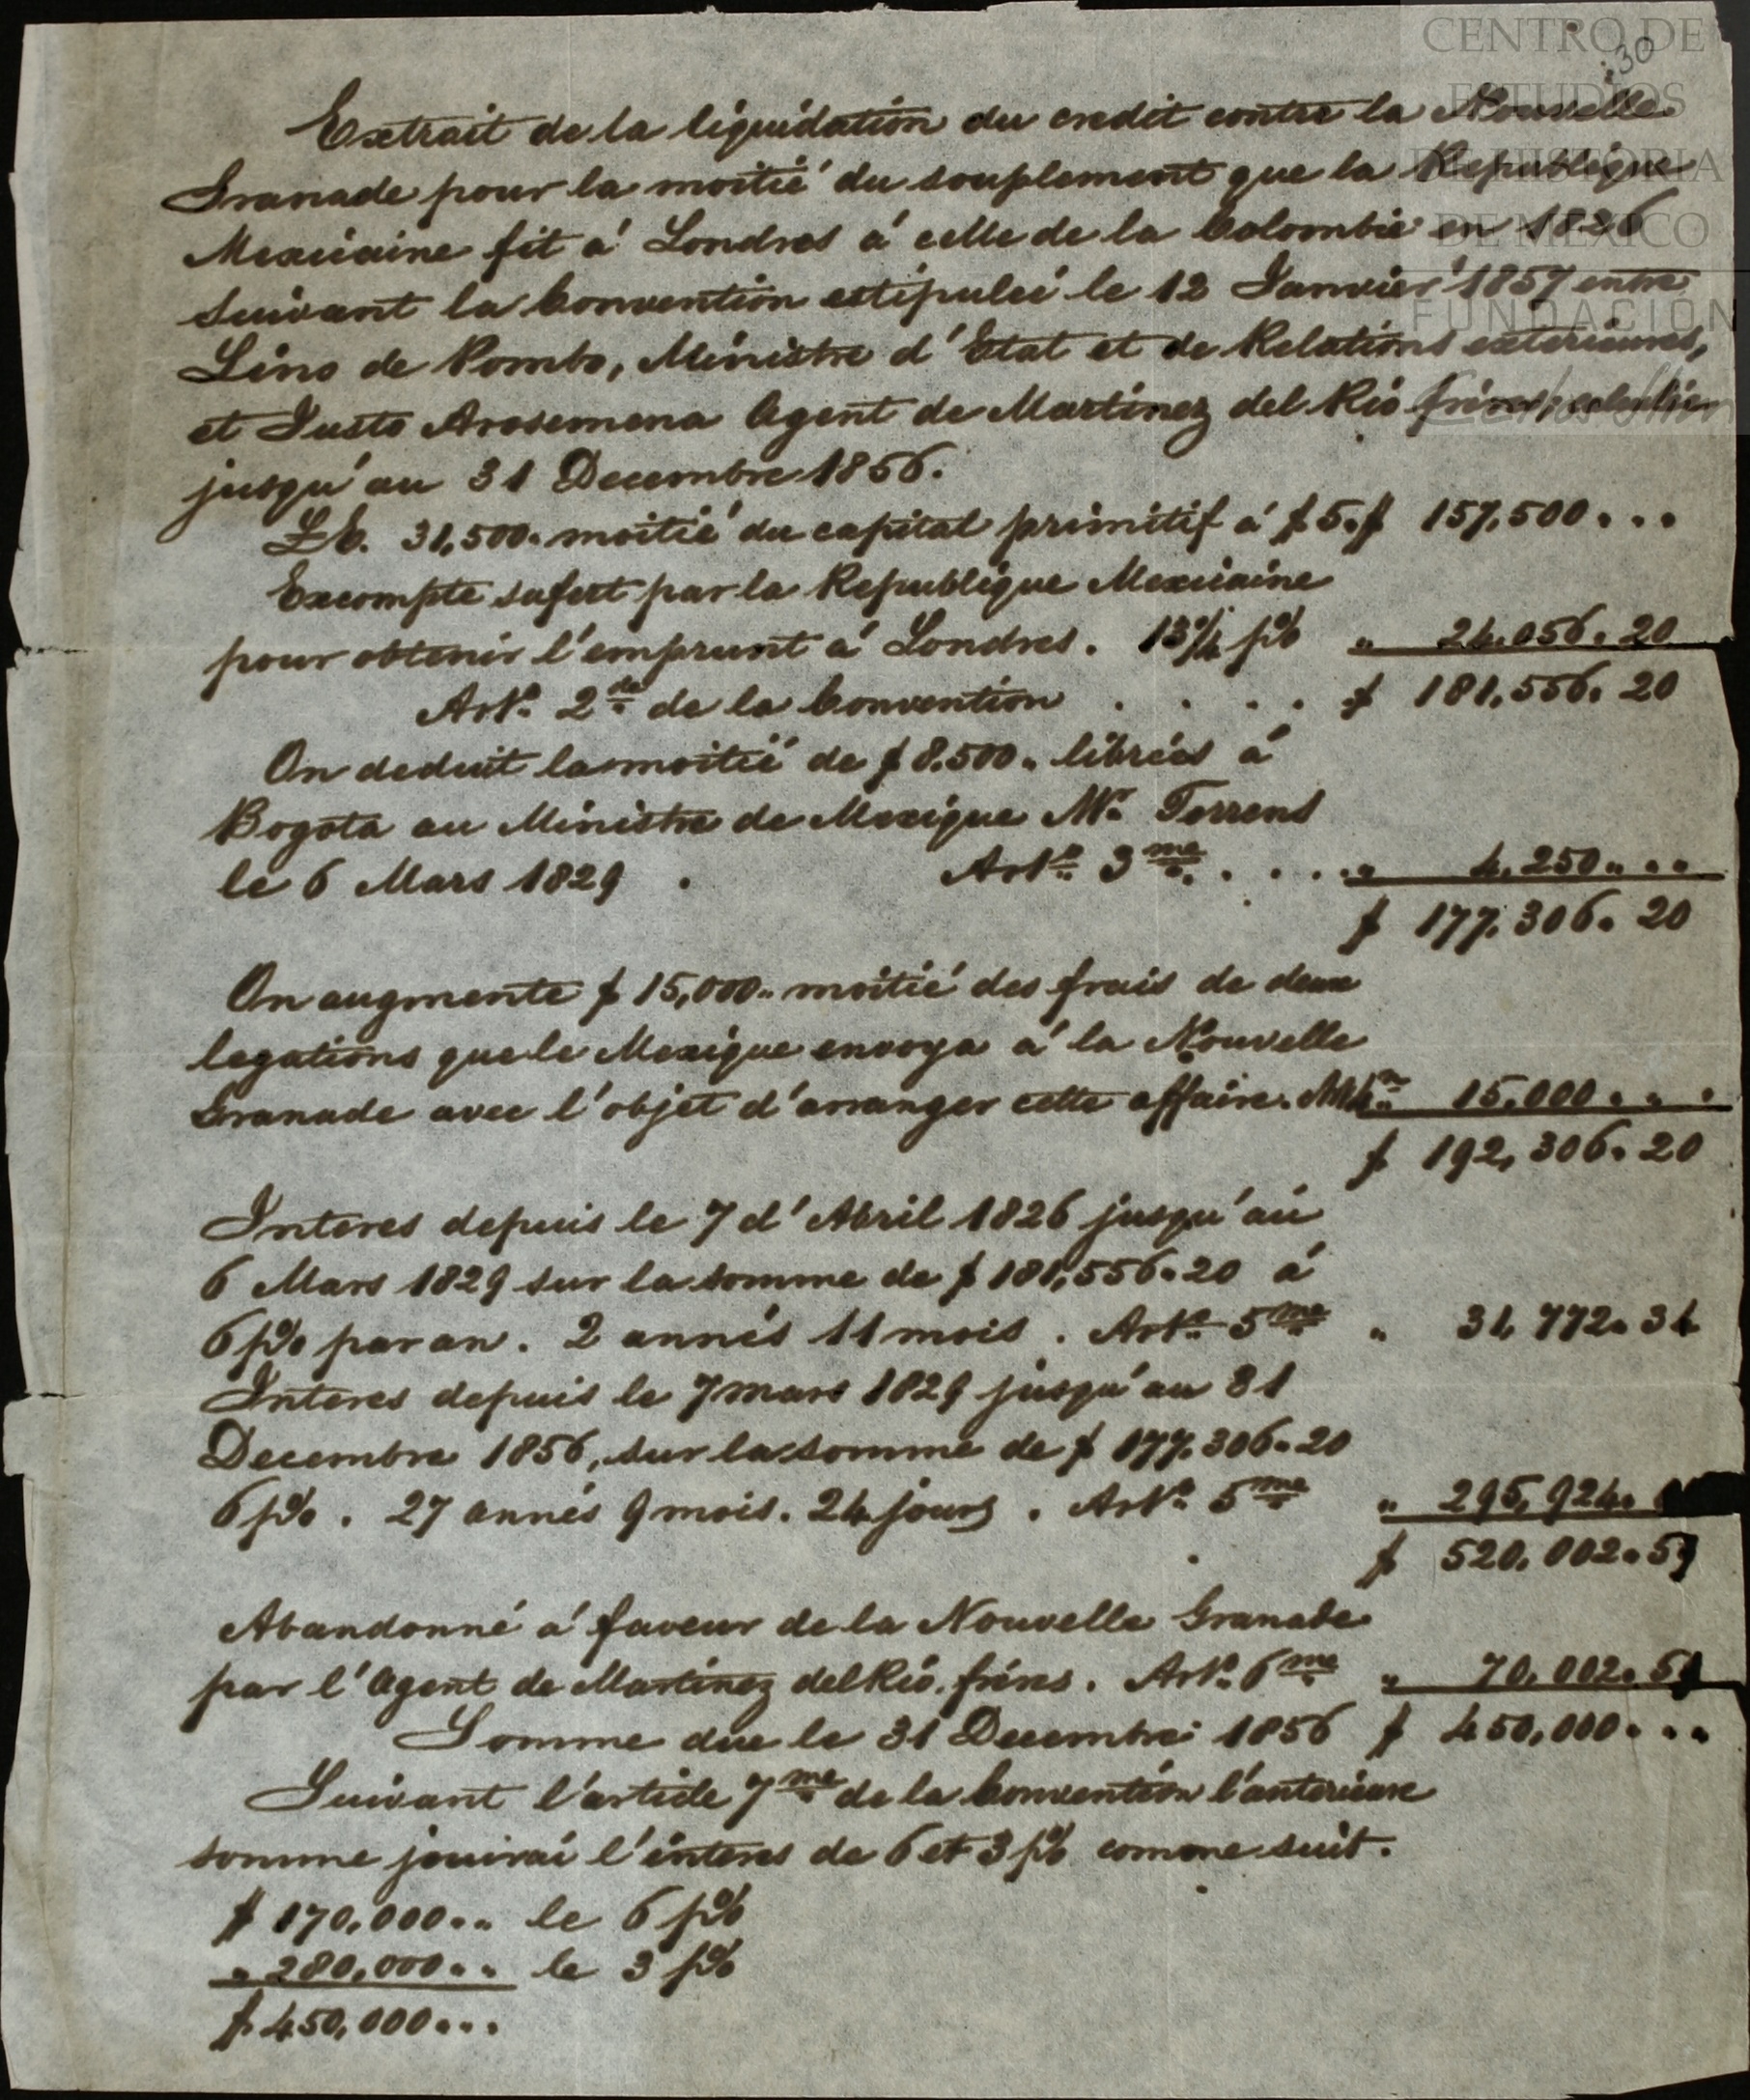 CENTRO DE
ESTUDIOS
DE HISTORIA
DE MÉXICO
FUNDACIÓN
30
Extrait de la liquidation du credit contre la Nouvelle
Granade pour la moitié du souplement que la Republique
Mexiciaine fit á Londres á celle de la Colombie en 1826
suivant la Convention estipuleé le 12 Janvier 1857 entre
Lino de Pombo, Ministre d'Etat et de Relations exterieures,
et Justo Arosemena Agent de Martinez del Rio fréres,
jusqu'au 31 Decembre 1856.
Lb. 31,500. moitié du capital primitif á $5. $ 157,500...
Excompte sufert par la Republique Mexiciaine
pour obtenir l'emprunt á Londres. 13¼ p% " 24.056.20
Arto. 2de de la Convention . . . . $ 181,556.20
On deduit la moitié de $8.500.. libreés á
Bogota au Ministre de Mexique Mr. Torrens
le 6 Mars 1829 . Arto. 3me. . . . . " 4,250....
$ 177,306.20
On augmente $15,000.. moitié des frais de deux
legations que le Mexique envoya á la Nouvelle
Granade avec l'objet d'arranger cette affaire. 15.000....
$ 192,306.20
Interes depuis le 7 d'Abril 1826 jusqu'aú
6 Mars 1829 sur la somme de $181,556.20 á
6 p% par an. 2 annés 11 mois. Arto. 5me " 31,772.34
Interes depuis le 7 mars 1829 jusqu'au 31
Decembre 1856, sur la somme de $ 177.306.20
6 p%. 27 annés 9 mois. 24 jours. Arto. 5me " 295,924.
$ 520,002.59
Abandonné á faveur de la Nouvelle Granade
par l'Agent de Martinez del Rio fréres. Arto. 6me " 70,002.59
Somme due le 31 Decembre 1856 $ 450,000...
Suivant l'article 7me de la Convention l'anterieure
somme jouirai l'interes de 6 et 3 p% comme suit.
$ 170,000... le 6 p%
" 280,000... le 3 p%
$ 450,000...